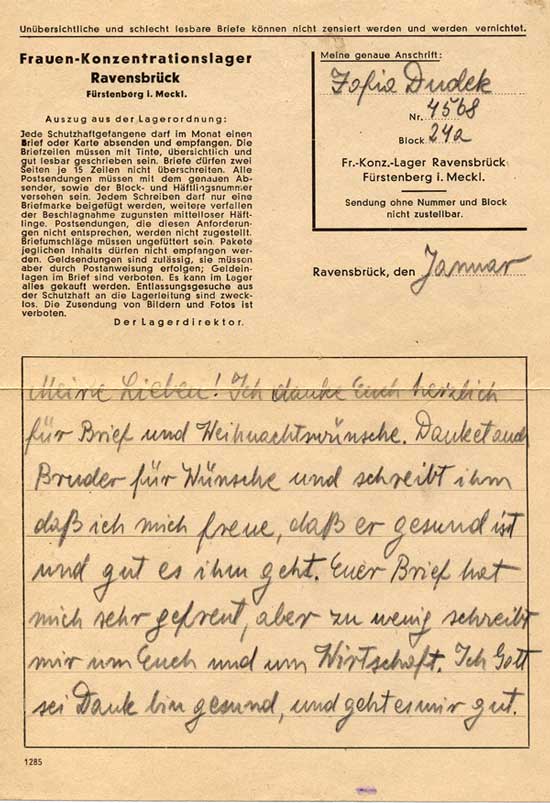 Unübersichtliche und schlecht lesbare Briefe können nicht zensiert werden und werden vernichtet.
Frauen-Konzentrationslager
Ravensbrück
Fürstenberg i. Meckl.
Auszug aus der Lagerordnung:
Jede Schutzhaftgefangene darf im Monat einen
Brief oder Karte absenden und empfangen. Die
Briefzeilen müssen mit Tinte, übersichtlich und
gut lesbar geschrieben sein. Briefe dürfen zwei
Seiten je 15 Zeilen nicht überschreiten. Alle
Postsendungen müssen mit dem genauen Ab-
sender, sowie der Block- und Häftlingsnummer
versehen sein. Jedem Schreiben darf nur eine
Briefmarke beigefügt werden, weitere verfallen
der Beschlagnahme zugunsten mittelloser Häft-
linge. Postsendungen, die diesen Anforderun-
gen nicht entsprechen, werden nicht zugestellt.
Briefumschläge müssen ungefüttert sein. Pakete
jeglichen Inhalts dürfen nicht empfangen wer-
den. Geldsendungen sind zulässig, sie müssen
aber durch Postanweisung erfolgen; Geldein-
lagen im Brief sind verboten. Es kann im Lager
alles gekauft werden. Entlassungsgesuche aus
der Schutzhaft an die Lagerleitung sind zweck-
los. Die Zusendung von Bildern und Fotos ist
verboten.
Der Lagerdirektor.
Meine genaue Anschrift:
Zofia Dudek
Nr. 4568
Block 24a
Fr.-Konz.-Lager Ravensbrück
Fürstenberg i. Meckl.
Sendung ohne Nummer und Block
nicht zustellbar.
Ravensbrück, den Januar
Meine Lieben! Ich danke Euch herzlich
für Brief und Weihnachtwünsche. Danket auch
Bruder für Wünsche und schreibt ihm
daß ich mich freue, daß er gesund ist
und gut es ihm geht. Euer Brief hat
mich sehr gefreut, aber zu wenig schreibt
mir um Euch und um Wirtschaft. Ich Gott
sei Dank bin gesund, und geht es mir gut.
1285